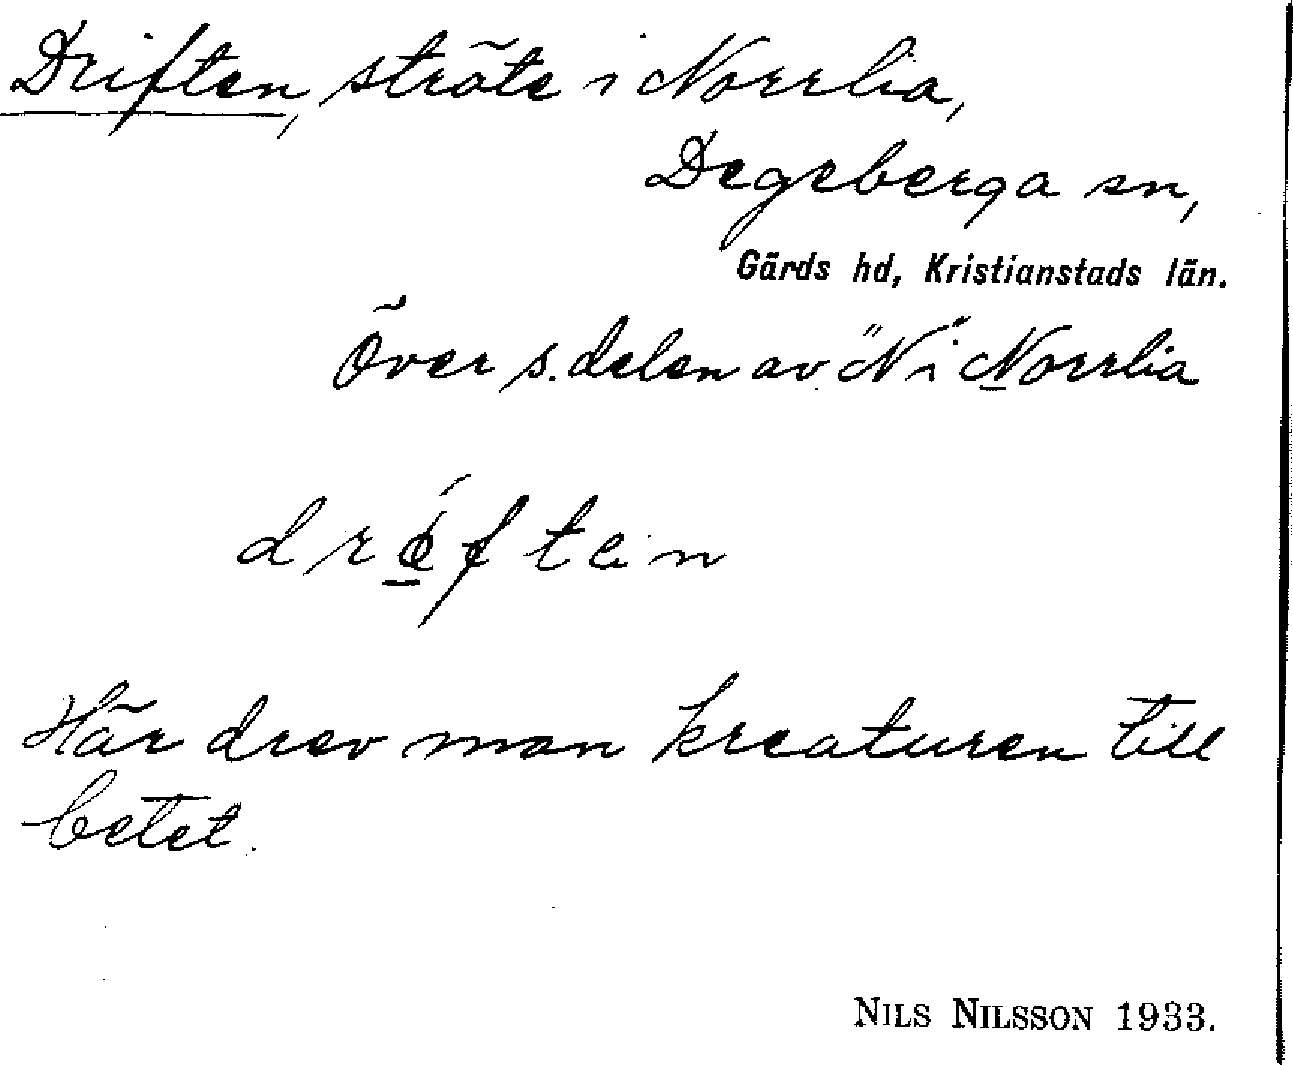 Driften, sträte i Norrlia,
Degeberga sn,
Gärds hd, Kristianstads län.
Över s. delen av "N i Norrlia
Här drev man kreaturen till
betet.
NILS NILSSON 1933.